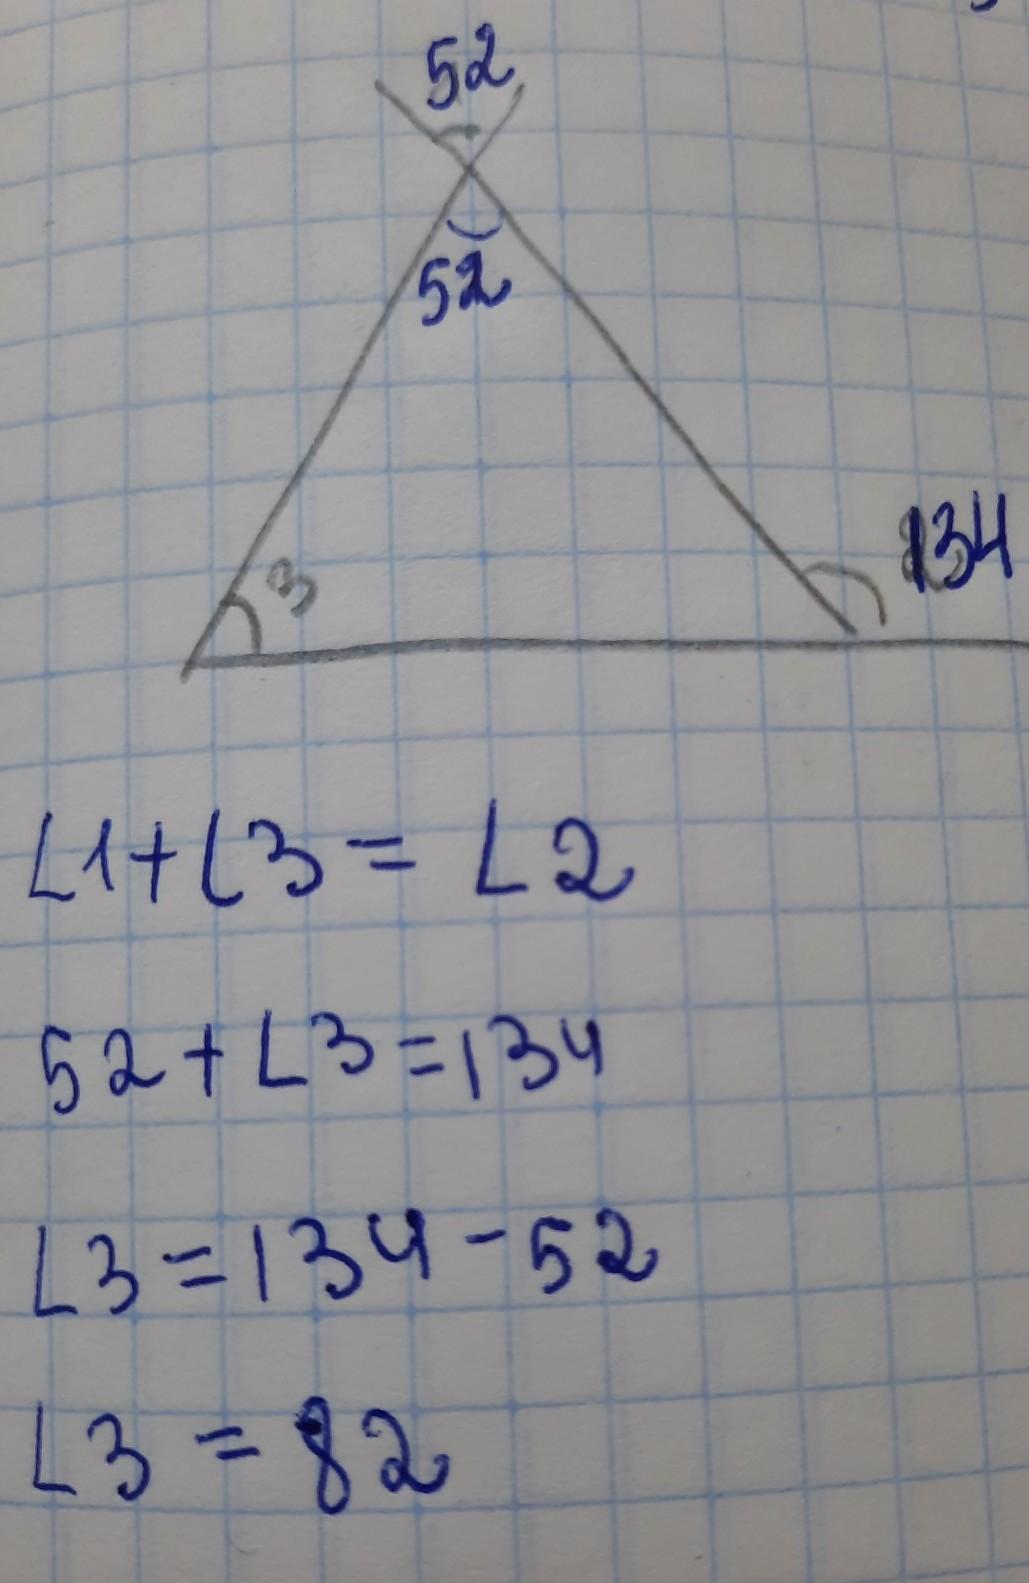 52
52
134
3
∠1+∠3=∠2
52+∠3=134
∠3=134-52
∠3=82